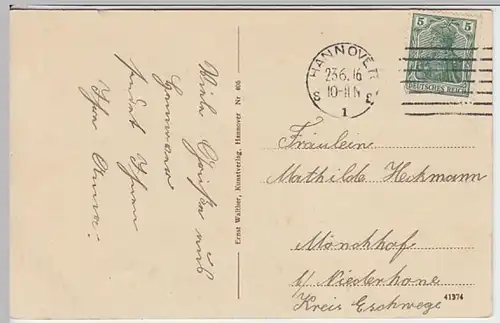 Viele Grüße aus
Hannover
sendet Ihnen
Ihre Anna.
Ernst Walther, Kunstverlag, Hannover Nr 406
HANNOVER
23.6.16
10-11 N
S
1
5 5
DEUTSCHES REICH
Fräulein
Mathilde Heckmann
Mönchhof
b/ Niederhone
Kreis Eschwege
41374